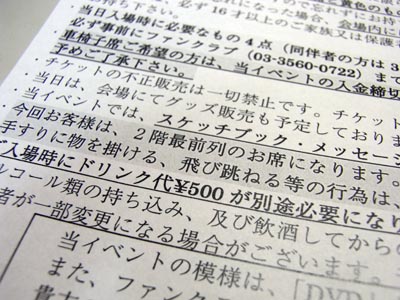 黄色の
なった場合、会場内に
い。必ず16才以上のご家族又は保護者
当日入場時に必要なもの4点（同伴者の方は3
必ず事前にファンクラブ（03-3560-0722）まで
車椅子席ご希望の方は、当イベントの入金締切
予めご了承下さい。
・チケットの不正販売は一切禁止です。チケット
・当日は、会場にてグッズ販売も予定しておりま
・当イベントでは、スケッチブック・メッセージ
・今回お客様は、2階最前列のお席になります。
手すりに物を掛ける、飛び跳ねる等の行為は、
ご入場時にドリンク代¥500が別途必要になり
ルコール類の持ち込み、及び飲酒してからの
者が一部変更になる場合がございます。
当イベントの模様は、[DVD
また、ファンク